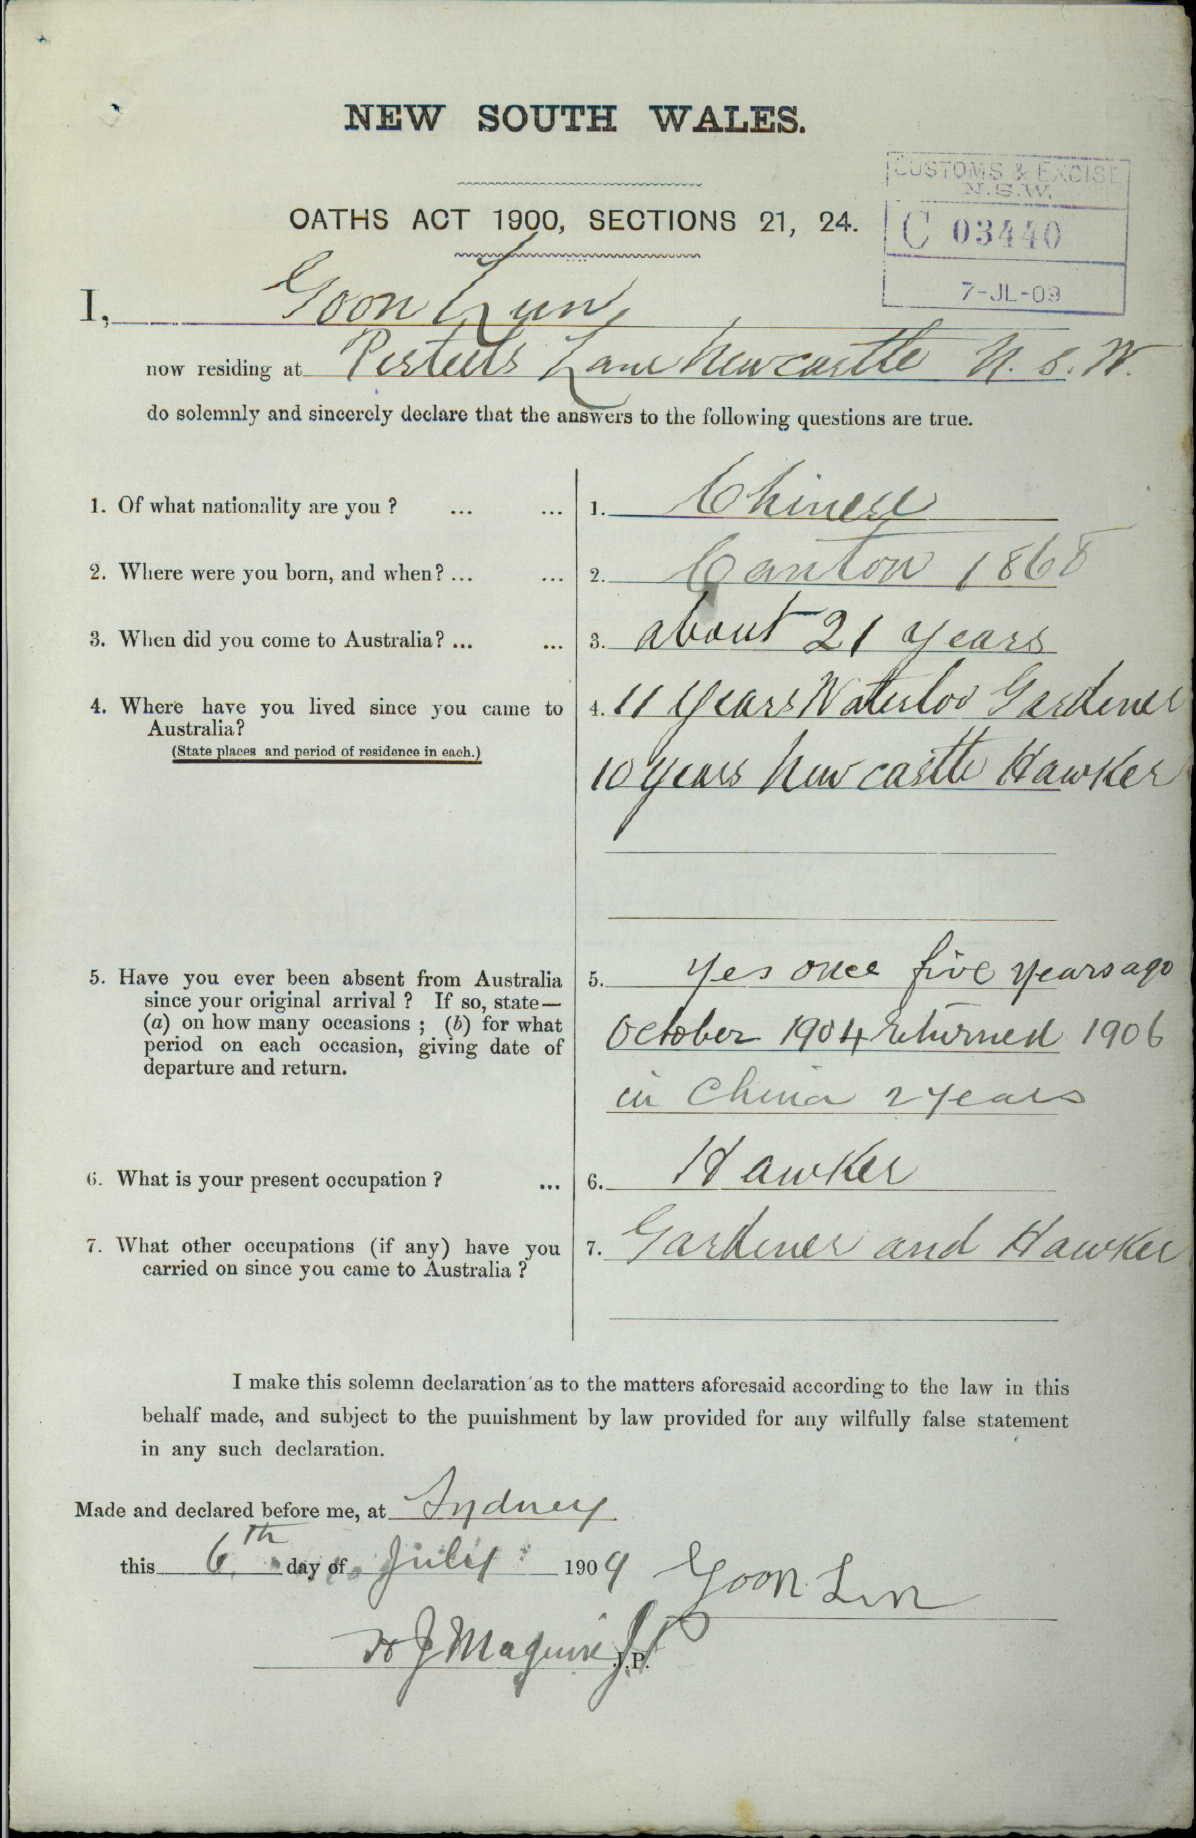 NEW SOUTH WALES.
CUSTOMS & EXCISE
N.S.W.
C 03440
7-JL-09
OATHS ACT 1900, SECTIONS 21, 24.
I, Goon Lun,
now residing at Lane Newcastle N.S.W.
do solemnly and sincerely declare that the answers to the following questions are true.
1. Of what nationality are you ? ... ... 1. Chinese
2. Where were you born, and when? ... ... 2. Canton 1868
3. When did you come to Australia? ... ... 3. about 21 years
4. Where have you lived since you came to 4. 11 years Waterloo Gardener
Australia?
(State places and period of residence in each.)
10 years Newcastle Hawker
5. Have you ever been absent from Australia 5. Yes once five years ago
since your original arrival ? If so, state—
(a) on how many occasions ; (b) for what October 1904 returned 1906
period on each occasion, giving date of
departure and return.
in China 2 years
6. What is your present occupation ? ... 6. Hawker
7. What other occupations (if any) have you 7. Gardener and Hawker
carried on since you came to Australia ?
I make this solemn declaration as to the matters aforesaid according to the law in this
behalf made, and subject to the punishment by law provided for any wilfully false statement
in any such declaration.
Made and declared before me, at Sydney
this 6th day of July 1909
Goon Lun
J Maguire JP
J.P.